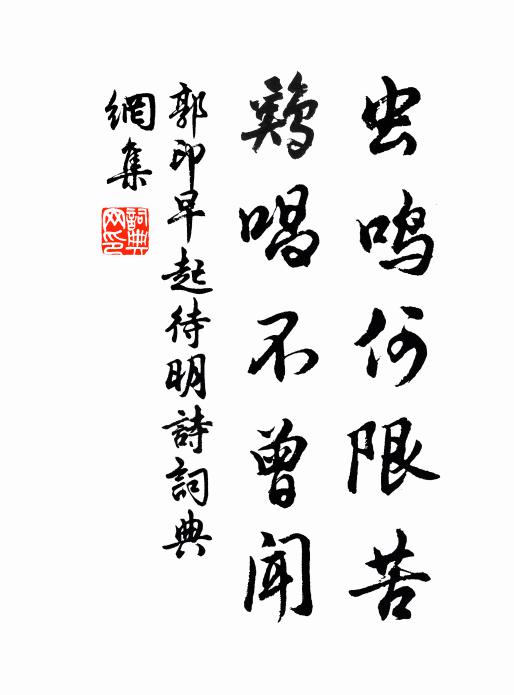 虫鸣何限苦
鷄唱不曾闻
郭印早起待明詩詞典
網集
詞典网印